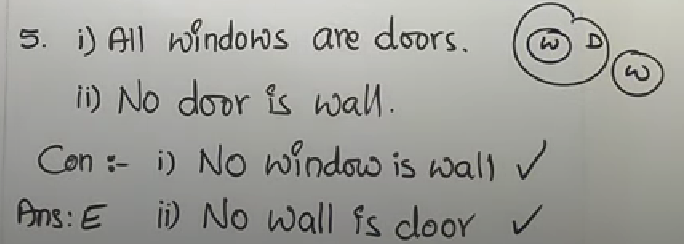 5. i) All windows are doors.
W D
W
ii) No door is wall.
Con :- i) No window is wall ✓
Ans: E ii) No wall is door ✓